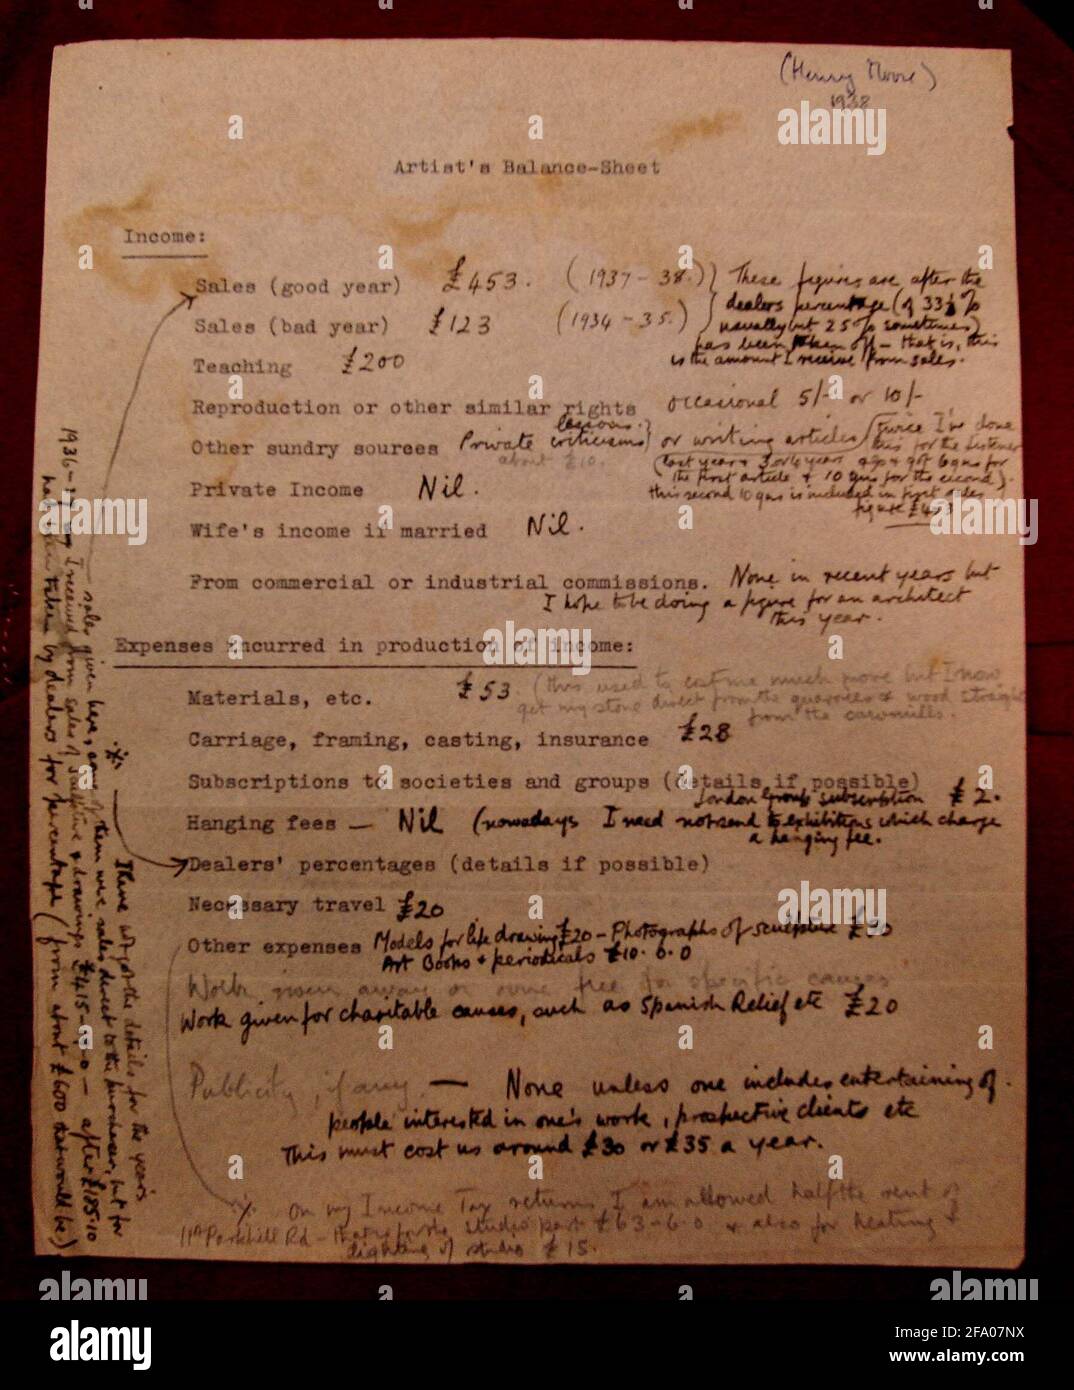 (Henry Moore)
1938
Artist's Balance-Sheet
Income:
Sales (good year) £453. (1937-38.) } These figures are after the
dealers percentage (of 33⅓%
Sales (bad year) £123 (1934-35.) } usually but 25% sometimes)
has been taken off - that is, this
is the amount I receive from sales.
Teaching £200
Reproduction or other similar rights occasional 5/- or 10/-
Other sundry sources Private lessons criticisms } or writing articles (Twice I've done
about £10.
this for the Listener
(last year & 3 or 4 years ago & got 6 gns for
the first article & 10 gns for the second).
this second 10 gns is included in first sales
figure £453
Private Income Nil.
Wife's income if married Nil.
From commercial or industrial commissions. None in recent years but
I hope to be doing a figure for an architect
this year.
Expenses incurred in production of income:
Materials, etc. £53. (this used to cost me much more but I now
get my stone direct from the quarries & wood straight
from the sawmills.
Carriage, framing, casting, insurance £28
Subscriptions to societies and groups (details if possible)
London Group subscription £2.
Hanging fees - Nil (nowadays I need not send to exhibitions which charge
a hanging fee.
Dealers' percentages (details if possible)
Necessary travel £20
Other expenses Models for life drawing £20 - Photographs of sculpture £30
Art Books & periodicals £10.0.0
Work given away or done free for specific causes
Work given for charitable causes, such as Spanish Relief etc £20
Publicity, if any - None unless one includes entertaining of
people interested in one's work, prospective clients etc
This must cost us around £30 or £35 a year.
x. On my Income Tax returns I am allowed half the rent of
11A Parkhill Rd - that is for the studio part £63-6.0 & also for heating &
lighting of studio £15.
* I have not got the details for the years
sales given here, some of them were sales direct to the purchaser, but for
1936-37 I received from sales of sculpture & drawings £415-0-0 - after £185.10
had been taken by dealers for percentage (from about £600 that would be.)
alamy
a
Image ID: 2FA07NX
www.alamy.com